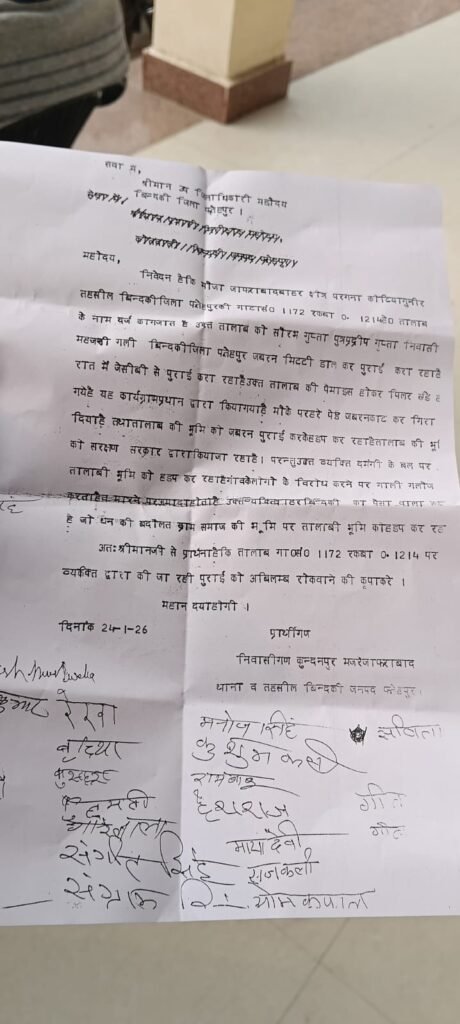 सेवा में,
श्रीमान उप जिलाधिकारी महोदय
बिन्दकी जिला फतेहपुर ।
महोदय,
निवेदन हैकि मौजा जाफराबादबाहर क्षेत्र परगना कोटियागुनीर
तहसील बिन्दकीजिला फतेहपुरकी गाटासं0 1172 रकबा 0.1214हे0 तालाब
के नाम दर्ज कागजात है उक्त तालाब को सौरभ गुप्ता पुत्रप्रदीप गुप्ता निवासी
महाजनी गली बिन्दकीजिला फतेहपुर जबरन मिटटी डाल कर पुराई करा रहाहै
रात में जेसीबी से पुराई करा रहाहैउक्त तालाब की पैमाइस होकर पिलर खडे ह
गयेहै यह कार्यग्रामप्रधान द्वारा कियागयाहै मौके परहरे पेड जबरनकाट कर गिरा
दियाहै तथातालाब की भूमि को जबरन पुराई करकेहडप कर रहाहैतालाब की भू
को सरक्षण सरकार द्वाराकियाजा रहाहै। परन्तुउक्त व्यक्ति दबंगी के बल पर
तालाबी भूमि को हडप कर रहाहैगांवकेलोगों के विरोध करने पर गाली गलौज
करताहै मारने परउमादाहोताहै उक्तव्यक्ति का पैसा वाला
है जो धन की बदौलत ग्राम समाज की भूमि पर तालाबी भूमि कोहडप कर रह
अतःश्रीमानजी से प्रार्थनाहैकि तालाब गा0सं0 1172 रकबा 0.1214 पर
व्यक्ति द्वारा की जा रही पुराई को अबिलम्ब रोकवाने की कृपाकरे ।
महान दयाहोगी ।
दिनांक 24-1-26
प्रार्थीगण
निवासीगण कुन्दनपुर मजरेजाफराबाद
थाना व तहसील बिन्दकी जनपद फतेहपुर।
कुमार रेखा
मनोज सिंह
सबिता
कुशुम कली
रामबाबू
देशराज
गीता
माया देवी
संगीत सिंह
राजकली
संग्राम सिं
ओमकपाल